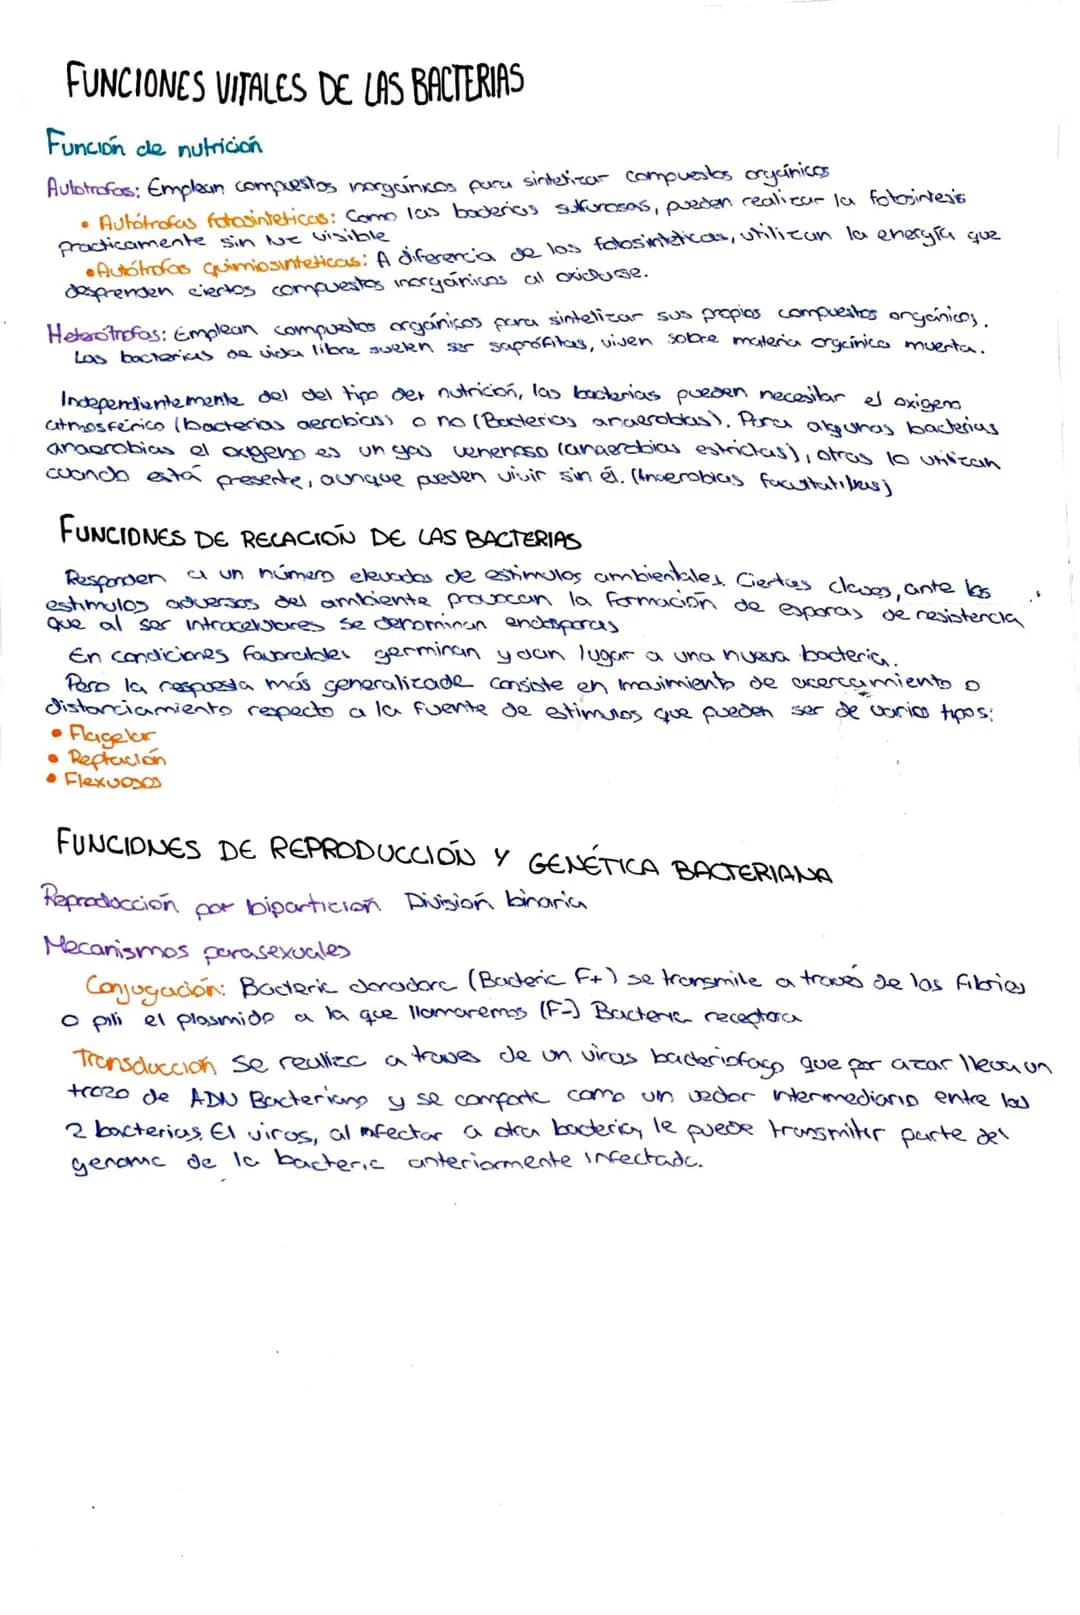 FUNCIONES VITALES DE LAS BACTERIAS
Función de nutrición
Autótrofas: Emplean compuestos inorgánicos para sintetizar compuestos orgánicos
• Autótrofas fotosintéticas: Como las bacterias sulfurosas, pueden realizar la fotosíntesis
prácticamente sin luz visible
• Autótrofas quimiosintéticas: A diferencia de las fotosintéticas, utilizan la energía que
desprenden ciertos compuestos inorgánicos al oxidarse.
Heterótrofas: Emplean compuestos orgánicos para sintetizar sus propios compuestos orgánicos.
Las bacterias de vida libre suelen ser saprófitas, viven sobre materia orgánica muerta.
Independientemente del del tipo der nutrición, las bacterias pueden necesitar el oxígeno
atmosférico (bacterias aerobias) o no (Bacterias anaerobias). Para algunas bacterias
anaerobias el oxígeno es un gas venenoso (anaerobias estrictas), otras lo utilizan
cuando está presente, aunque pueden vivir sin él. (Anaerobias facultativas)
FUNCIONES DE RELACIÓN DE LAS BACTERIAS
Responden a un número elevados de estímulos ambientales. Ciertas clases, ante los
estímulos adversos del ambiente provocan la formación de esporas de resistencia
que al ser intracelulares se denominan endosporas
En condiciones favorables germinan y dan lugar a una nueva bacteria.
Pero la respuesta más generalizada consiste en movimiento de acercamiento o
distanciamiento respecto a la fuente de estímulos que pueden ser de varios tipos:
• Flagelar
• Reptación
• Flexuosos
FUNCIONES DE REPRODUCCIÓN Y GENÉTICA BACTERIANA
Reproducción por bipartición División binaria
Mecanismos parasexuales
Conjugación: Bacteria donadora (Bacteria F+) se transmite a través de las fibrias
o pili el plasmido a la que llamaremos (F-) Bacteria receptora
Transducción Se realiza a traves de un virus bacteriófago que por azar lleva un
trozo de ADN Bacteriano y se comporta como un vector intermediario entre las
2 bacterias. El virus, al infectar a otra bacteria, le puede transmitir parte del
genoma de la bacteria anteriormente infectada.